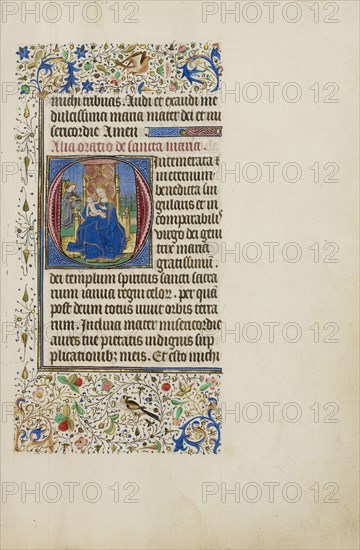 michi tribuas. Audi et exaudi me
dulcissima maria mater dei et mi
sericordie Amen
Alia oratio de sancta maria.
O Intemerata et
in eternum
benedicta sin
gularis et in
comparabil'
virgo dei geni
trix maria
gratissimū
dei templum spiritus sancti sacra
rium ianua regni celor. per quā
post deum totus viuit orbis terra
rum. Inclina mater misericordie
aures tue pietatis indignis sup
plicationibz meis. Et esto michi
PHOTO 12